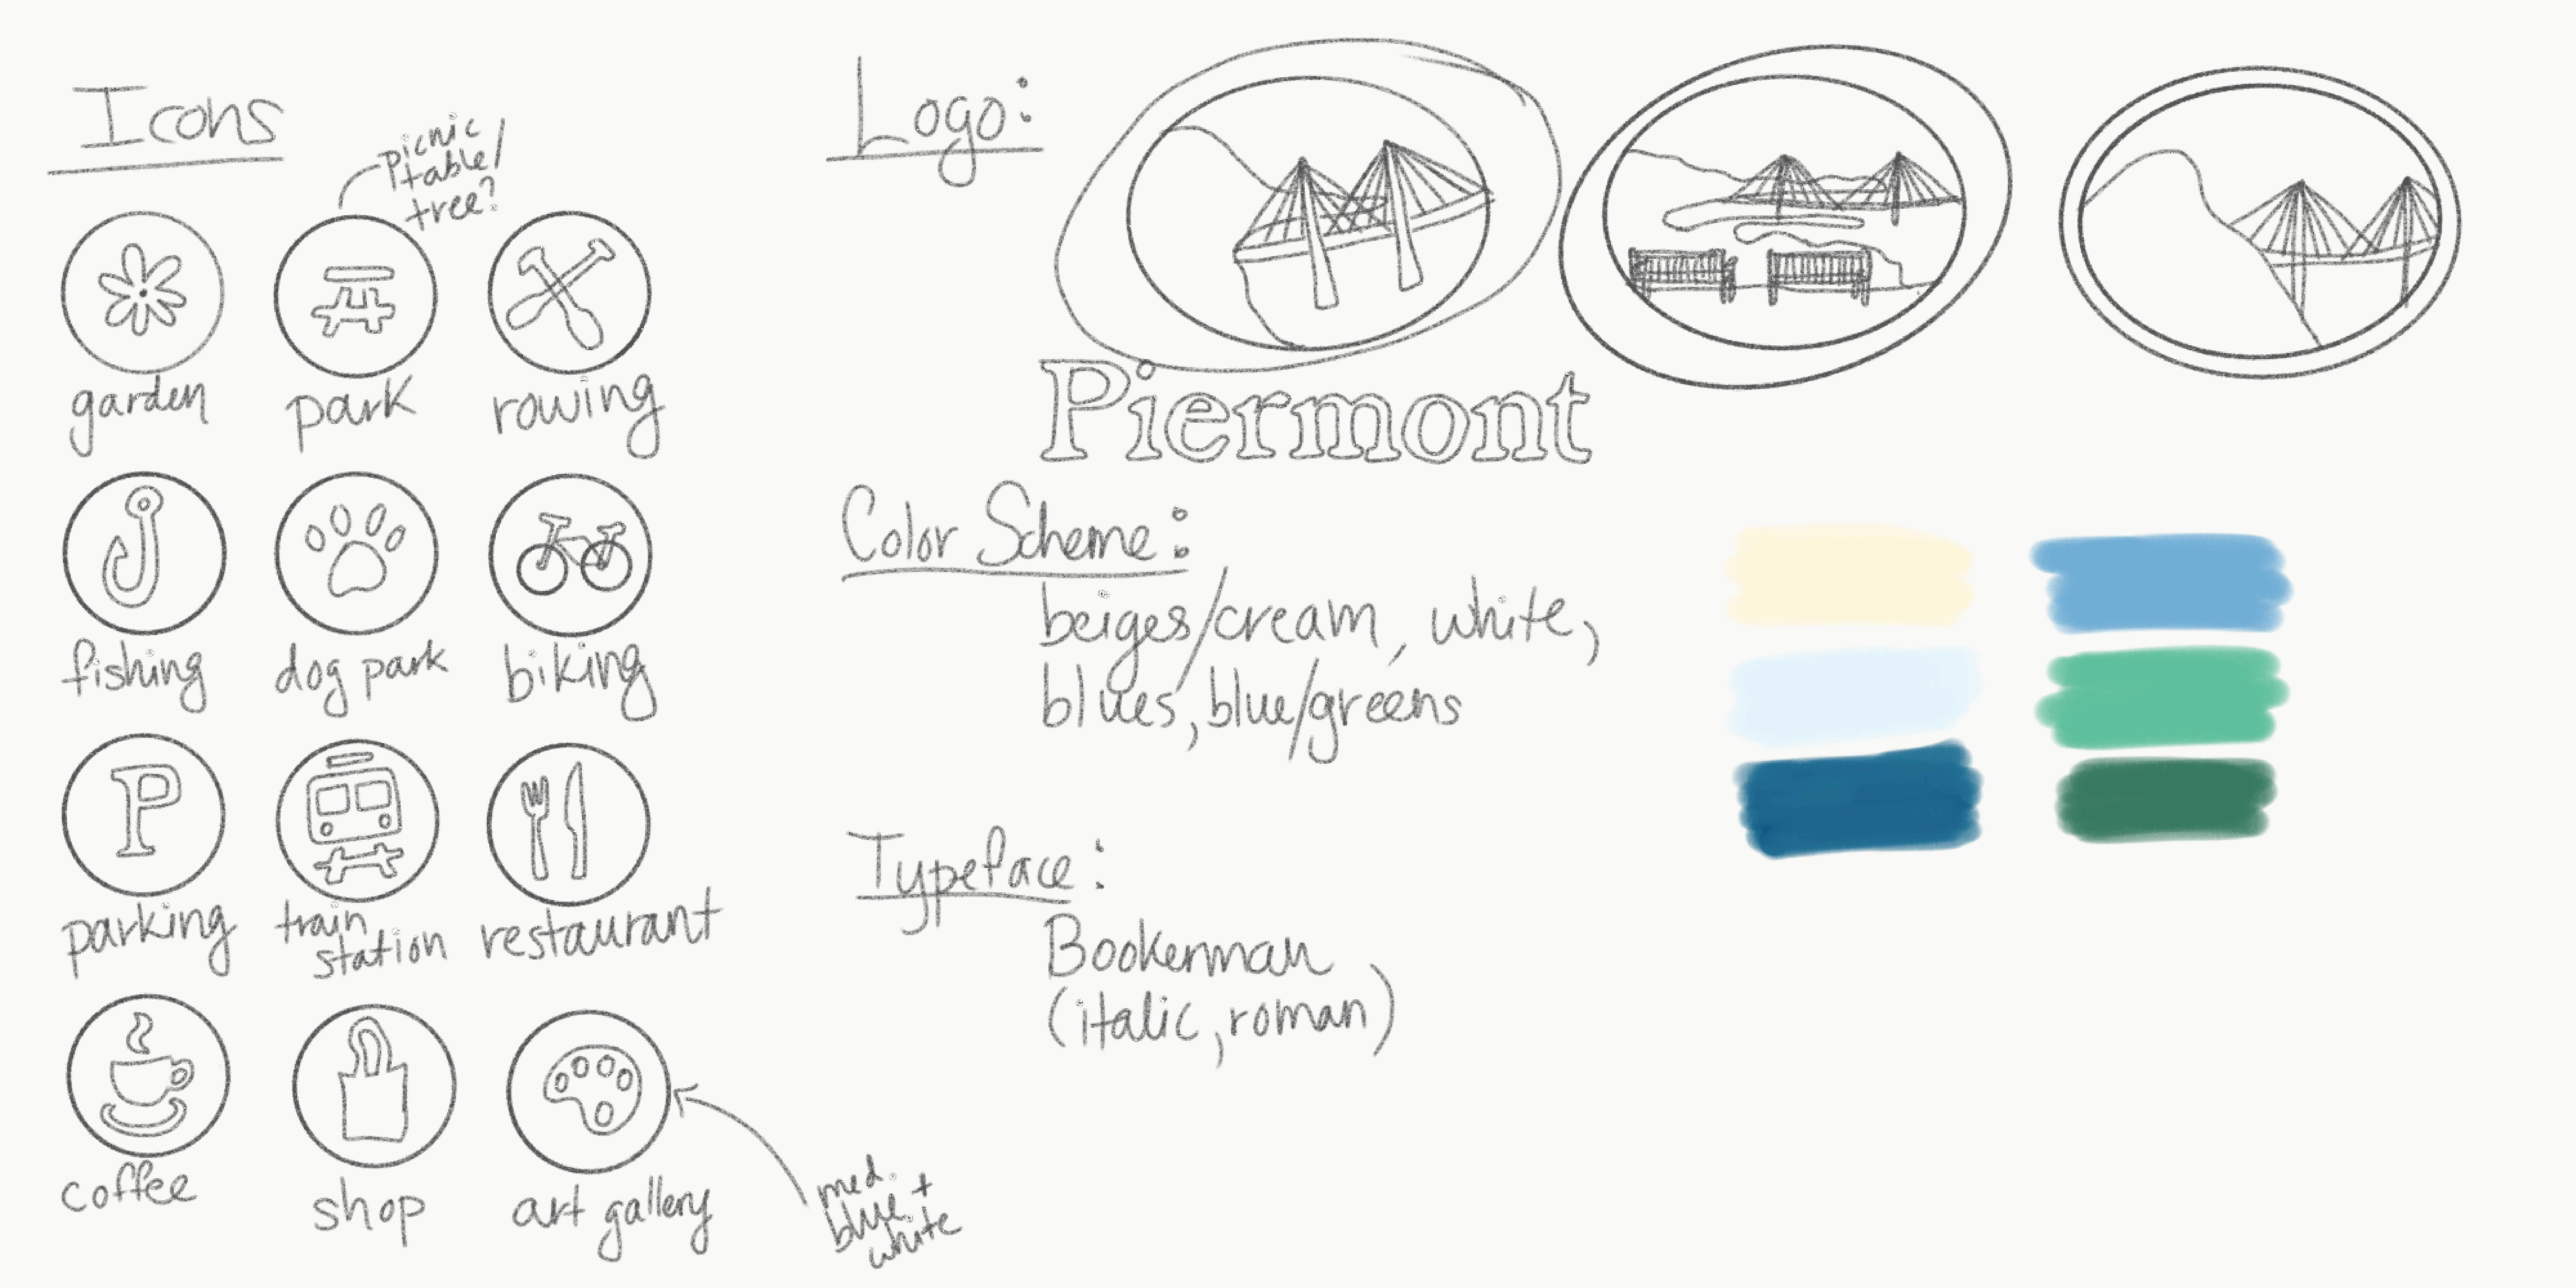 Icons
picnic
table/
tree?
garden
park
rowing
fishing
dog park
biking
P
parking
train
station
restaurant
coffee
shop
art gallery
med.
blue +
white
Logo:
Piermont
Color Scheme:
beiges/cream, white,
blues, blue/greens
Typeface:
Bookerman
(italic, roman)